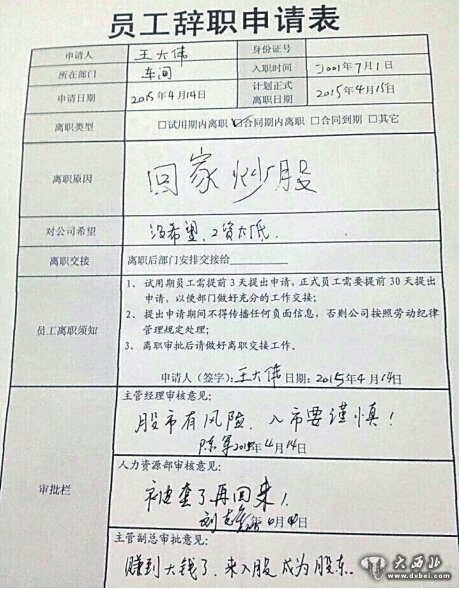 员工辞职申请表
申请人 王大伟 身份证号
所在部门 车间 入职时间 2001年7月1
申请日期 2015年4月14日 计划正式离职日期 2015年4月15日
离职类型 □试用期内离职 ☑合同期内离职 □合同到期 □其它
离职原因 回家炒股
对公司希望 没希望,工资太低.
离职交接 离职后部门安排交接给
员工离职须知
1、试用期员工需提前3天提出申请,正式员工需要提前30天提出
申请,以便部门做好充分的工作交接;
2、提出申请期间不得传播任何负面信息,否则公司按照劳动纪律
管理规定处理;
3、离职审批后请做好离职交接工作。
申请人(签字):王大伟 日期:2015年4月14日
审批栏
主管经理审核意见:
股市有风险,入市要谨慎!
陈军 2015年4月14日
人力资源部审核意见:
被套了再回来!
主管副总审批意见:
赚到大钱了,来入股成为股东.
大西北
www.dxbei.com